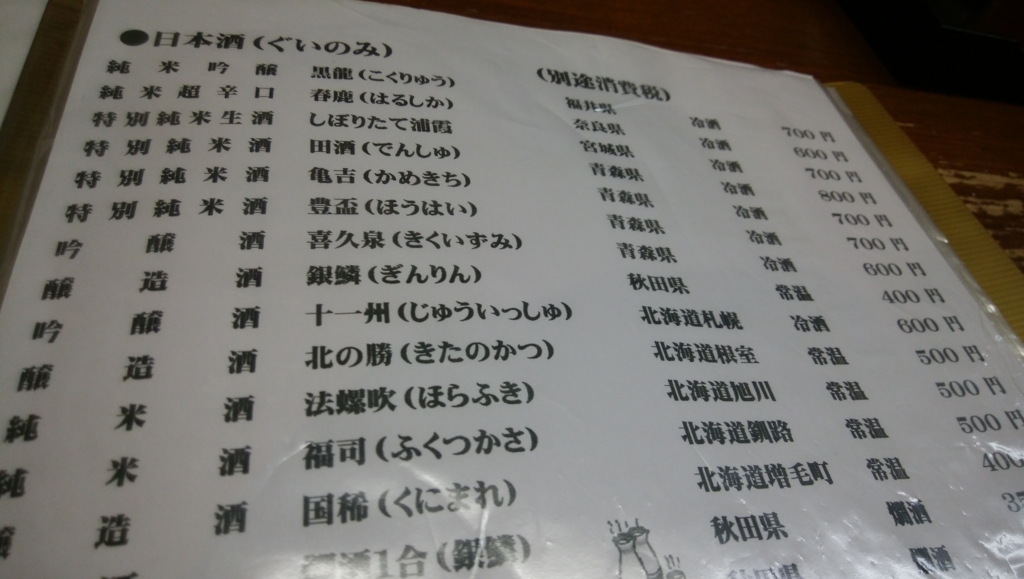 ●日本酒(ぐいのみ) (別途消費税)
純米吟醸 黒龍(こくりゅう) 福井県 冷酒 700円
純米超辛口 春鹿(はるしか) 奈良県 冷酒 600円
特別純米生酒 しぼりたて浦霞 宮城県 冷酒 700円
特別純米酒 田酒(でんしゅ) 青森県 冷酒 800円
特別純米酒 亀吉(かめきち) 青森県 冷酒 700円
特別純米酒 豊盃(ほうはい) 青森県 冷酒 700円
吟醸酒 喜久泉(きくいずみ) 青森県 冷酒 600円
醸造酒 銀鱗(ぎんりん) 秋田県 常温 400円
吟醸酒 十一州(じゅういっしゅ) 北海道札幌 冷酒 600円
醸造酒 北の勝(きたのかつ) 北海道根室 常温 500円
純米酒 法螺吹(ほらふき) 北海道旭川 常温 500円
純米酒 福司(ふくつかさ) 北海道釧路 常温 500円
醸造酒 国稀(くにまれ) 北海道増毛町 常温 400
酒1合(銀鱗) 秋田県 燗酒
秋田県 燗酒